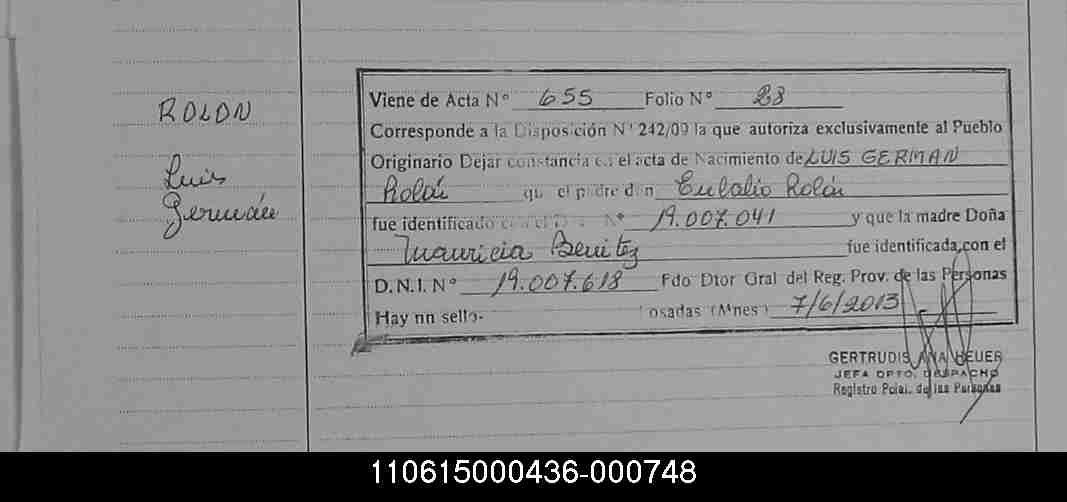 ROLON
Luis
Germán
Viene de Acta Nº 655 Folio Nº 28
Corresponde a la Disposición Nº 242/09 la que autoriza exclusivamente al Pueblo
Originario Dejar constancia en el acta de Nacimiento de LUIS GERMAN
Rolón que el padre don Eulalio Rolón
fue identificado con el D. Nº 19.007.041 y que la madre Doña
Mauricia Benitez fue identificada, con el
D.N.I. Nº 19.007.618 Fdo Dtor Gral del Reg. Prov. de las Personas
Hay nn sello- Posadas (Mnes) 7/6/2013
GERTRUDIS ANA BEUER
JEFA DPTO. DESPACHO
Registro Pcial. de las Personas
110615000436-000748